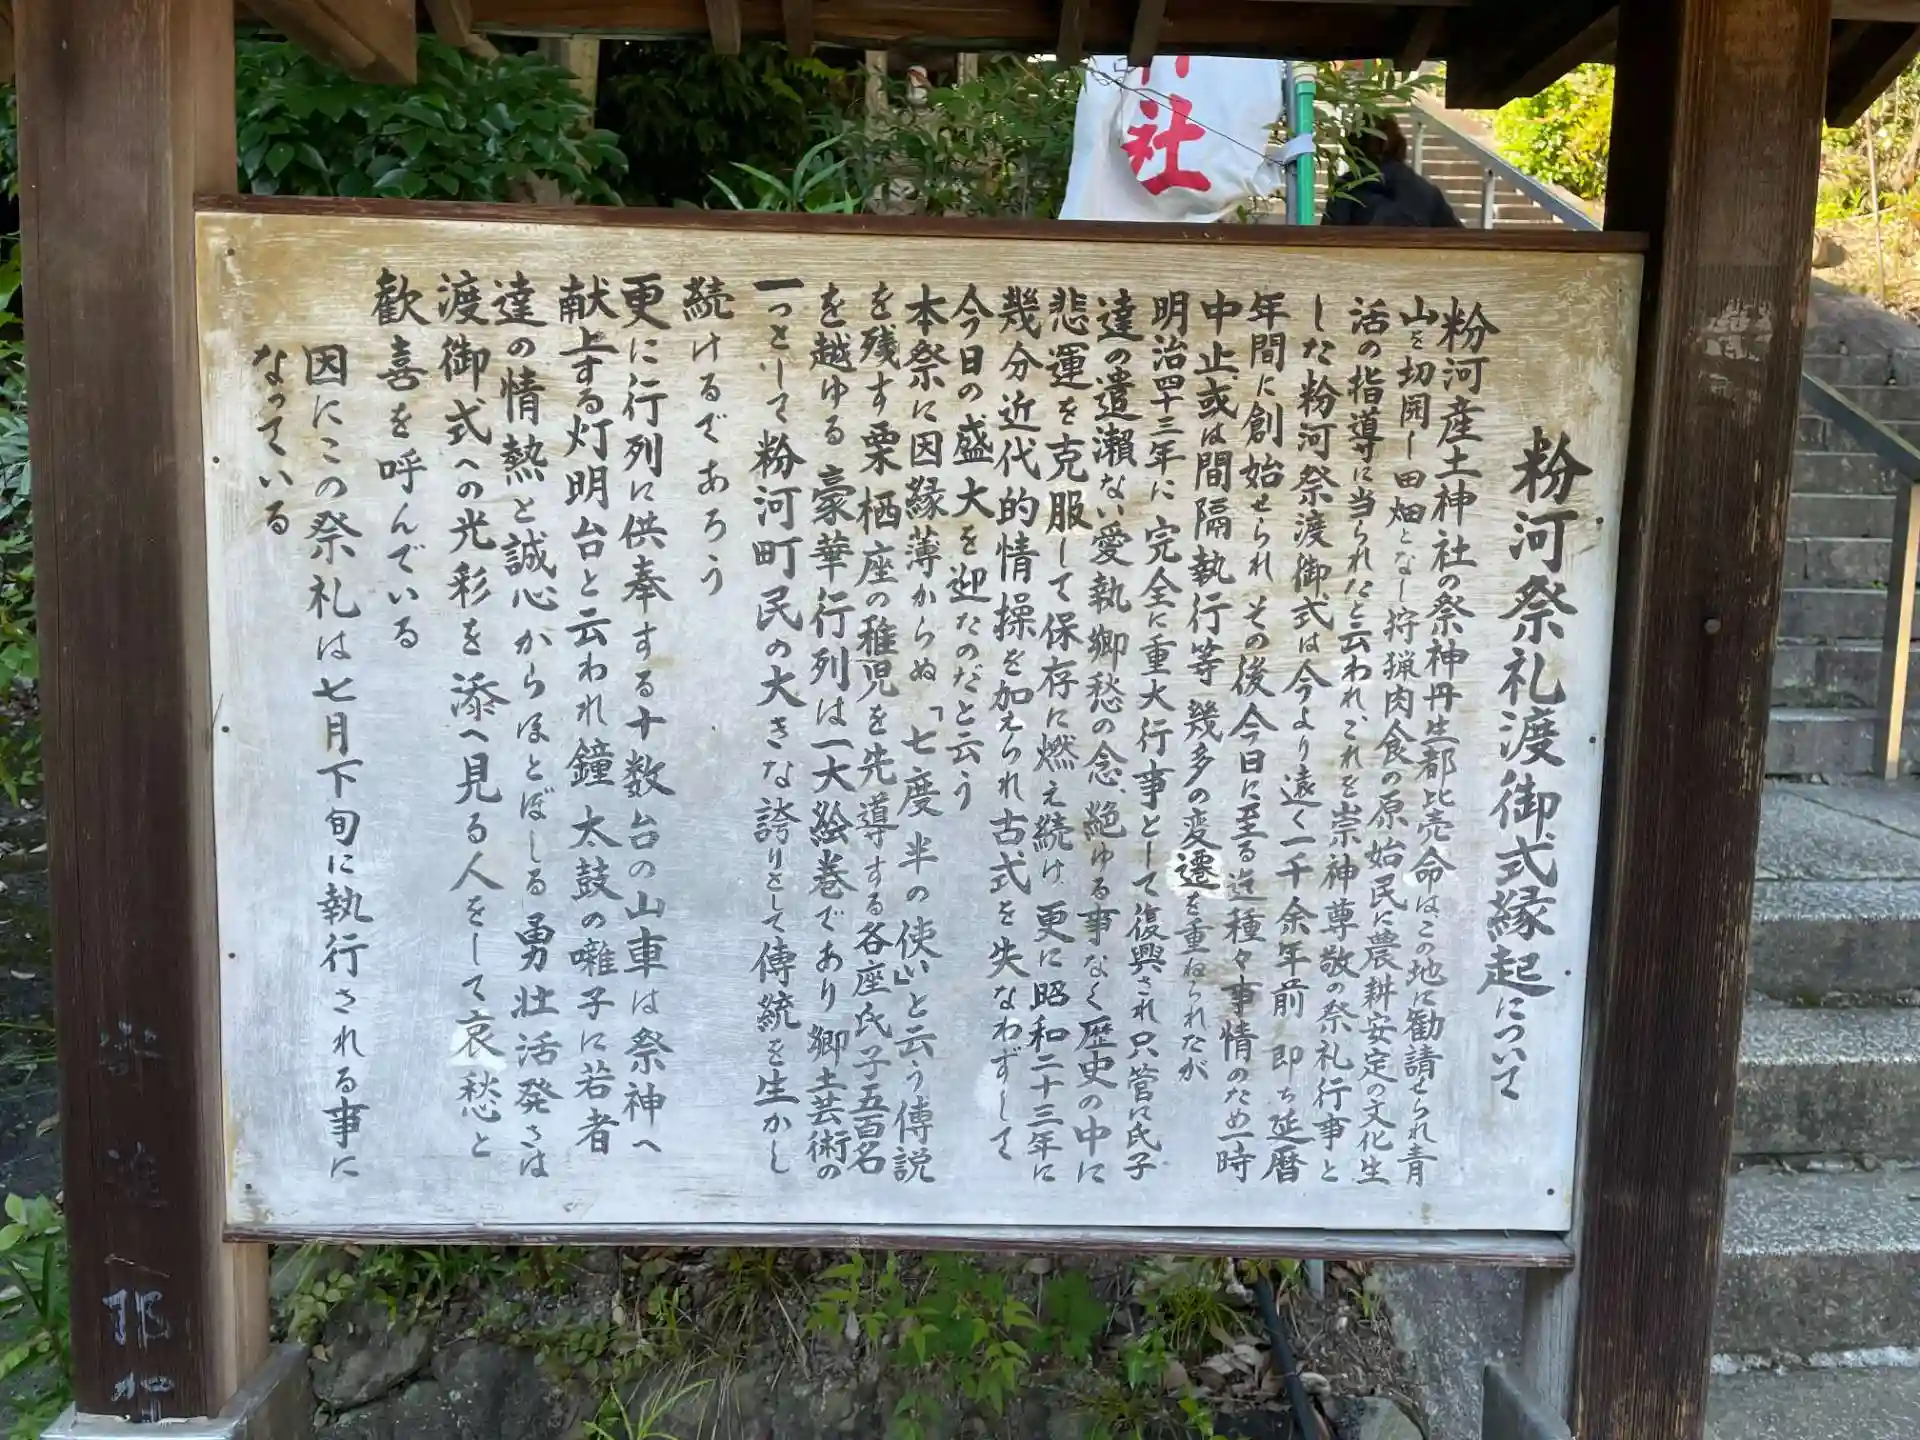 社
粉河祭礼渡御式縁起について
粉河産土神社の祭神丹生都比売命は、この地に勧請せられ青
山を切開し田畑となし狩猟肉食の原始民に農耕安定の文化生
活の指導に当られたと云われ、これを崇神尊敬の祭礼行事と
した粉河祭渡御式は今より遠く一千余年前 即ち延暦
年間に創始せられ その後今日に至る迄種々事情のため一時
中止或は間隔執行等 幾多の変遷を重ねられたが
明治四十三年に完全に重大行事として復興され只管に氏子
達の遣瀬ない愛執郷愁の念、絶ゆる事なく歴史の中に
悲運を克服して保存に燃え続け 更に昭和二十三年に
幾分近代的情操を加えられ古式を失なわずして
今日の盛大を迎たのだと云う
本祭に因縁薄からぬ「七度半の使い」と云う傳説
を残す栗栖座の稚児を先導する各座氏子五百名
を越ゆる豪華行列は一大絵巻であり郷土芸術の
一つとして粉河町民の大きな誇りとして傳統を生かし
続けるであろう
更に行列に供奉する十数台の山車は祭神へ
献上する灯明台と云われ鐘太鼓の囃子に若者
達の情熱と誠心からほとぼしる勇壮活発さは
渡御式への光彩を添へ見る人をして哀愁と
歓喜を呼んでいる
因にこの祭礼は七月下旬に執行される事に
なっている